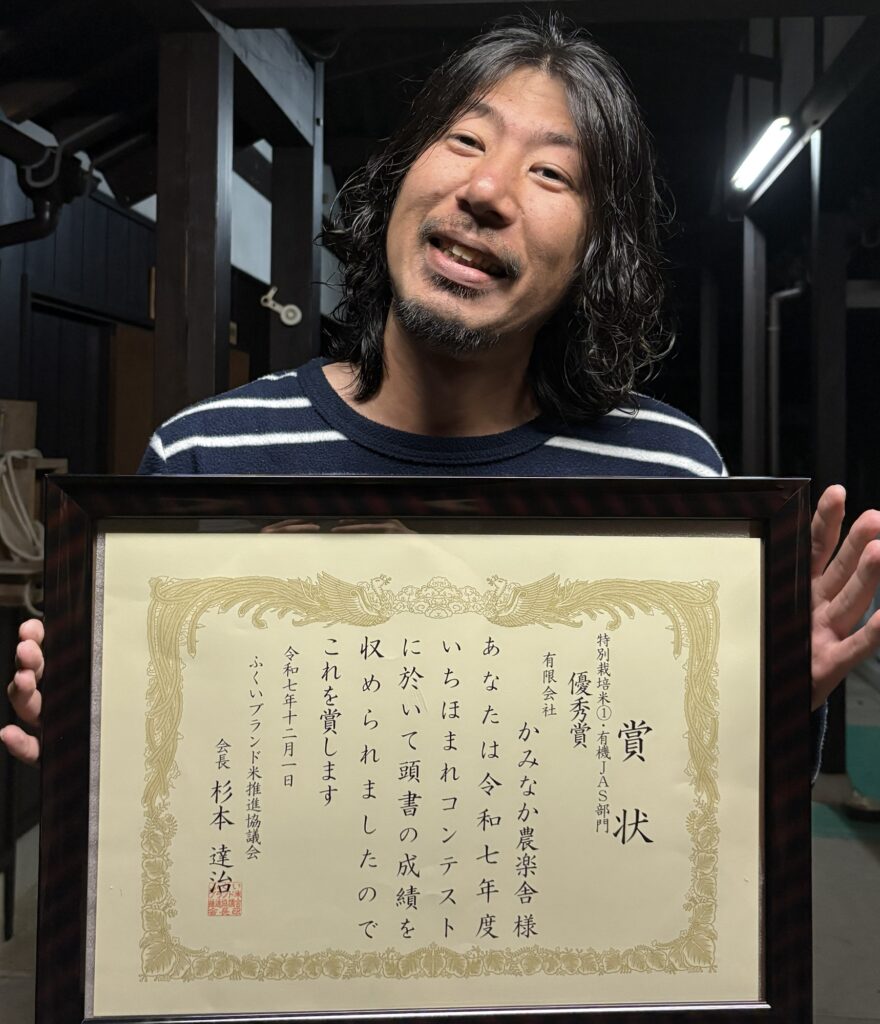 賞状
特別栽培米①・有機JAS部門
優秀賞
有限会社
かみなか農楽舎 様
あなたは令和七年度
いちほまれコンテスト
に於いて頭書の成績を
収められましたので
これを賞します
令和七年十二月一日
ふくいブランド米推進協議会
会長 杉本 達治